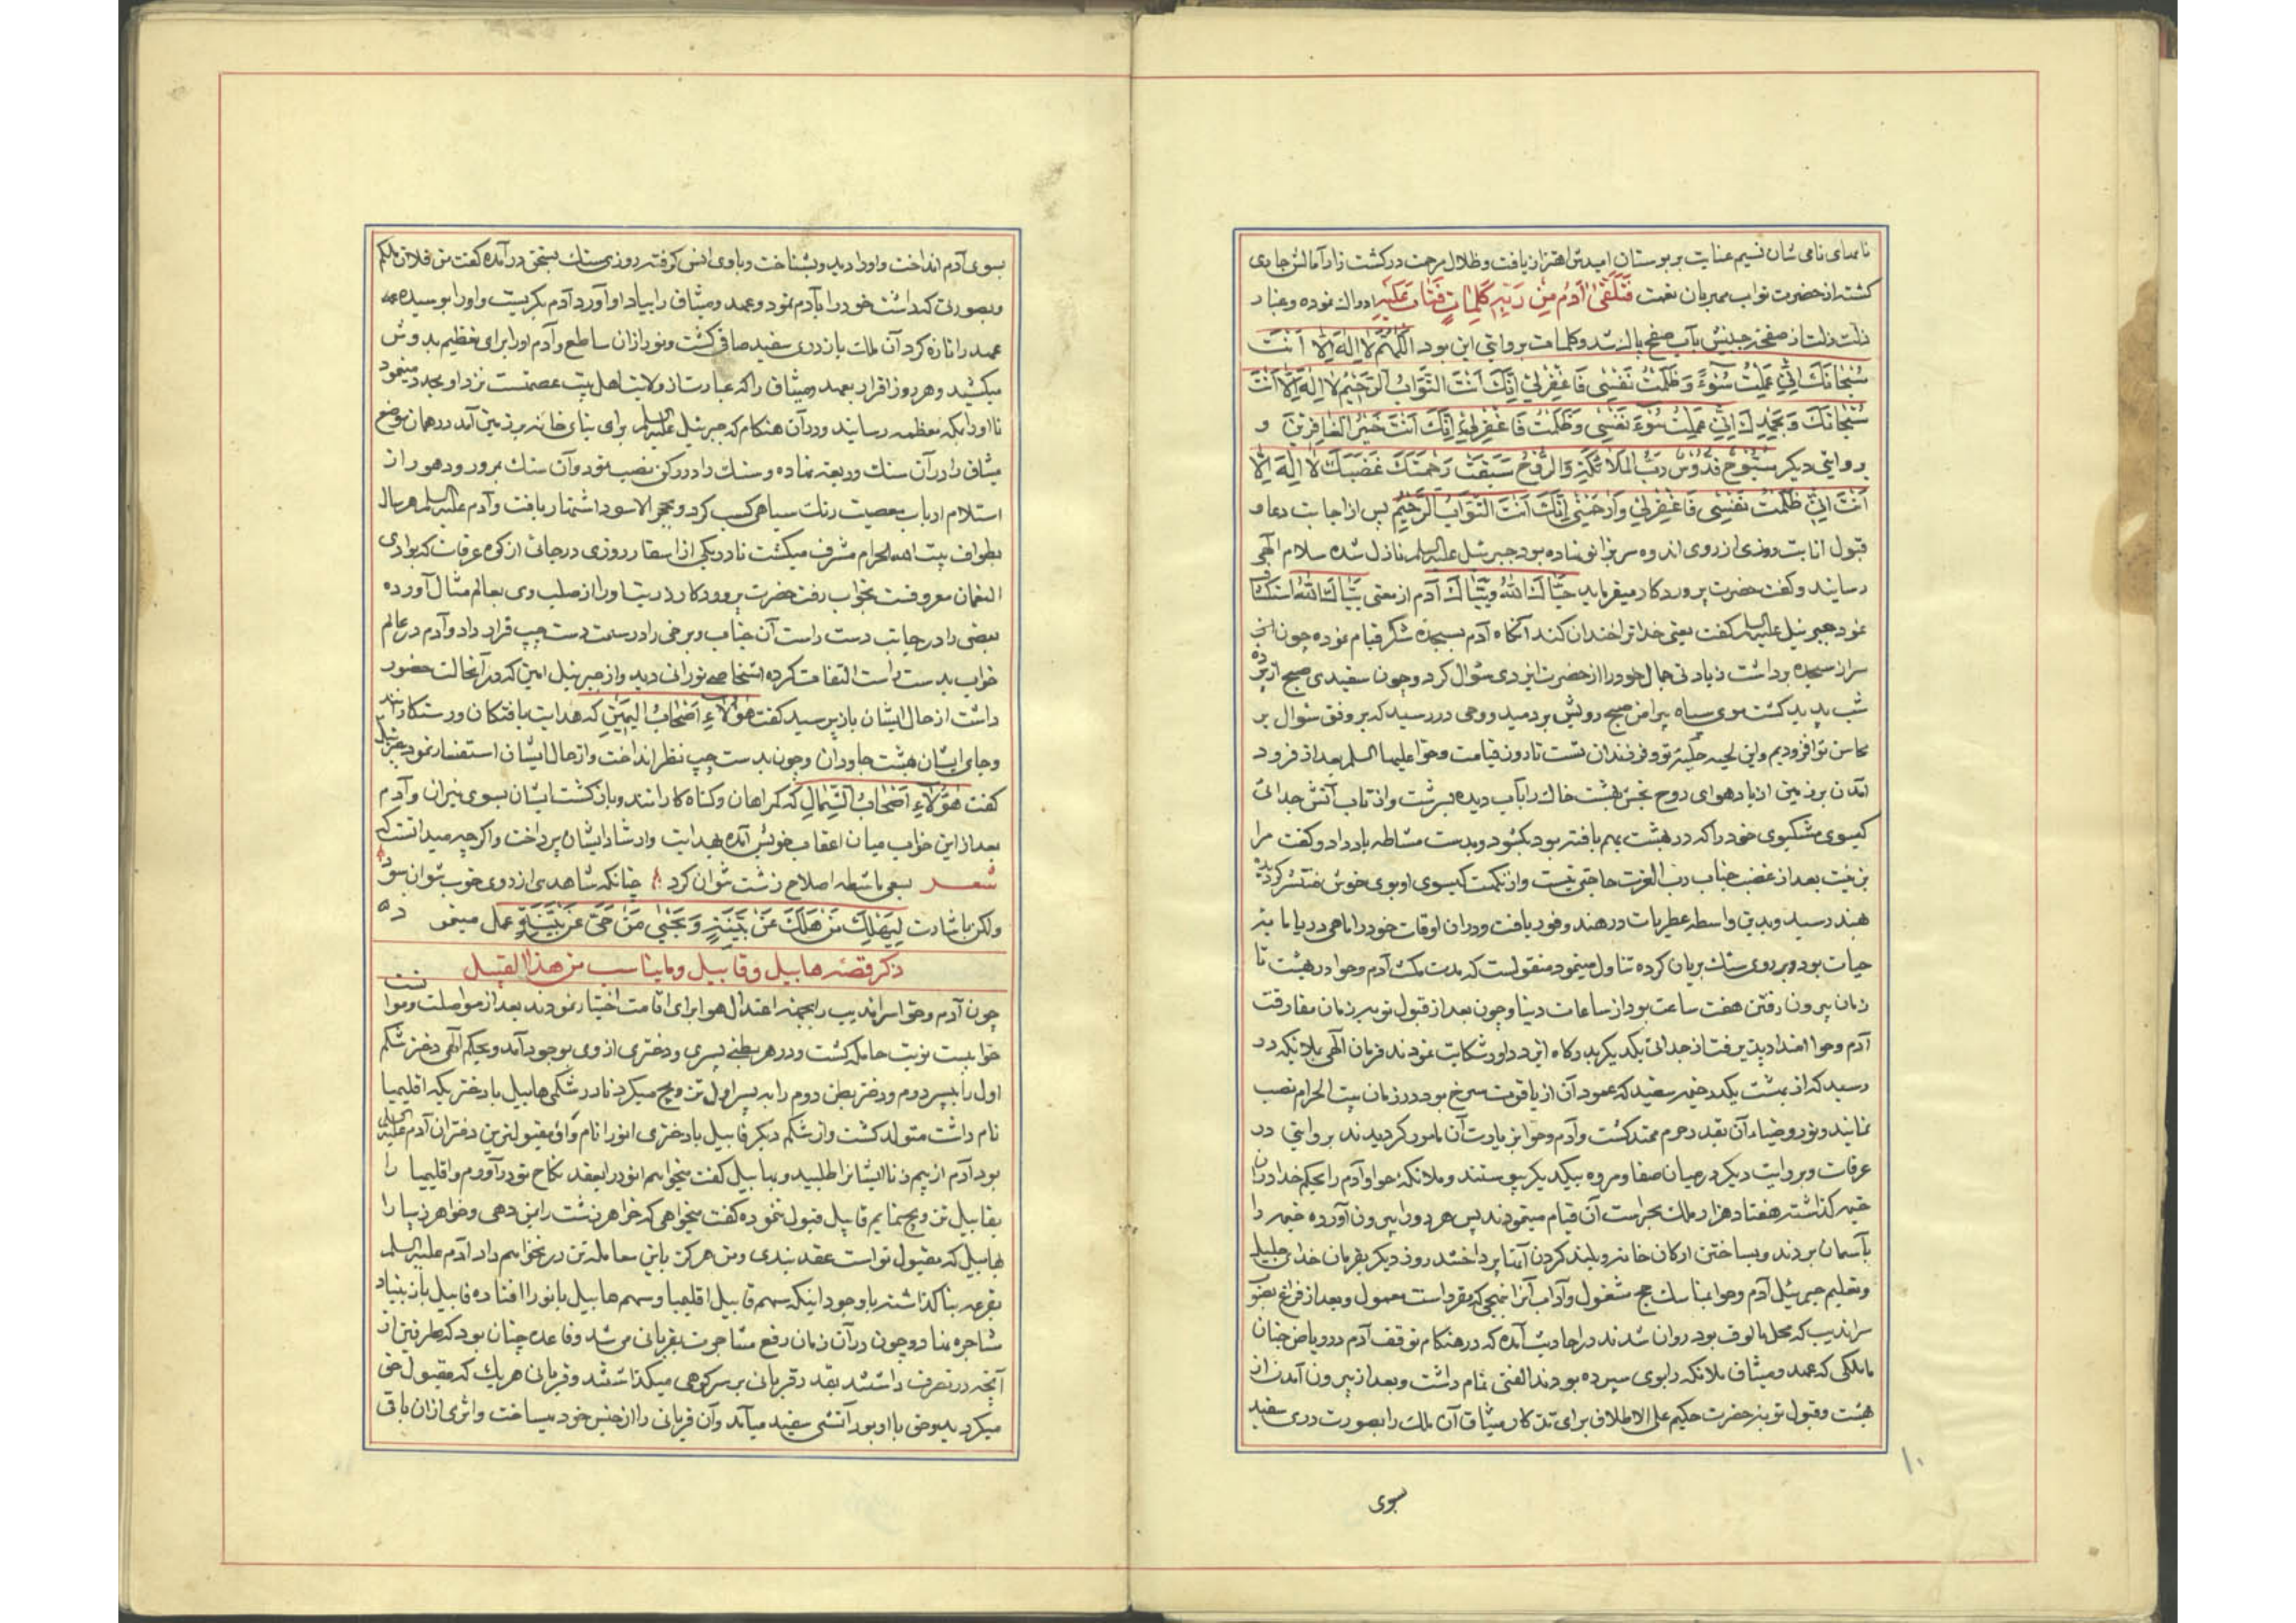 نامهای نامی شان نسیم عنایت بر بوستان امیدش اهتزاز یافت و ظلال مرحمت در کشت زار آمالش جاری
کشته از حضرت تواب مهربان نعمت فَتَلَقّیٰ آدَمُ مِن رَبِّهِ کَلِماتٍ فَتابَ عَلَیهِ ادراك نموده و غبار
ذلت زلت از صفحه جبینش بآب صفح پاك شد و کلمات بروایتی این بود اَللّهُمَّ لا اِلهَ اِلّا اَنْتَ
سُبْحانَكَ اِنّی عَمِلْتُ سُوْءً وَ ظَلَمْتُ نَفْسِی فَاغْفِرْلِی اِنَّكَ اَنْتَ التَّوّابُ الرَّحِیْمُ لا اِلهَ اِلّا اَنْتَ
سُبْحانَكَ وَ بِحَمْدِكَ اِنّی عَمِلْتُ سُوْءَ نَفْسِی وَ ظَلَمْتُ فَاغْفِرْلِی اِنَّكَ اَنْتَ خَیْرُ الْغافِرِیْنَ و
بروایتی دیکر سُبُّوحٌ قُدُّوسٌ رَبُّ الْمَلائِکَةِ وَ الرُّوحُ سَبَقَتْ رَحْمَتُكَ غَضَبَكَ لا اِلهَ اِلّا
اَنْتَ اِنّی ظَلَمْتُ نَفْسِی فَاغْفِرْلِی وَ ارْحَمْنِی اِنَّكَ اَنْتَ التَّوّابُ الرَّحِیْمُ پس از اجابت دعا و
قبول انابت روزی از روی اندوه سر بزانو نهاده بود جبرئیل علیه السلم نازل شده سلام الهی
رسانید و کفت حضرت پروردکار میفرماید حَیّاكَ اللهُ وَ بَیّاكَ آدم از معنی بَیّاكَ الله استکشاف
نمود جبرئیل علیه السلم کفت یعنی خدا ترا خندان کند آنکاه آدم بسجده شکر قیام نموده چون
سر از سجده برداشت زیادتی جمال خود را از حضرت ایزدی سؤال کرد و چون سفیدی صبح از پرده
شب پدید کشت موی سیاه پیرامن صبح رویش بردمید و وحی در رسید که بر وفق سؤال بر
محاسن تو افزودیم و این لحیه حلیه تو و فرزندان تست تا روز قیامت و حوا علیها السلم بعد از فرود
آمدن بر زمین از باد هوای روح بخش بهشت خاك را بآب دیده بسرشت و از تاب آتش جدائی
کیسوی مشکبوی خود را که در بهشت بهم بافته بود بکشود و بدست مشاطه باد داد و کفت مرا
بزینت بعد از غضب جناب رب العزت حاجتی نیست و از نکهت کیسوی او بوی خوش منتشر کردیده
بهند رسید و بدین واسطه عطریات در هند وفور یافت و در آن اوقات خود را ماهی دریا مایه
حیات بود و بر روی سنك بریان کرده تناول مینمود منقولست که مدت مکث آدم و حوا در بهشت تا
زمان بیرون رفتن هفت ساعت بود از ساعات دنیا و چون بعد از قبول توبه زمان مفارقت
آدم و حوا امتداد پذیرفت از جدائی یکدیکر بدرکاه ایزد داور شکایت نمودند فرمان الهی بملائکه در
رسید که از بهشت یکدر خیمه سفید که عمود آن از یاقوت سرخ بود در زمان بیت الحرام نصب
نمایند و نور و ضیاء آن بقدر حرم ممتد کشت و آدم و حوا بزیارت آن مامور کردیدند بروایتی در
عرفات و بروایت دیکر در میان صفا و مروه بیکدیکر پیوستند و ملائکه حوا و آدم را بحکم خدا در آن
خیمه کذاشته هفتاد هزار ملك بحراست آن قیام مینمودند پس هر دو را بیرون آورده خیمه را
بآسمان بردند و بساختن ارکان خانه و بلند کردن آن پرداختند روز دیکر بفرمان خدای جلیل
و تعلیم جبرئیل آدم و حوا بمناسك حج مشغول و آداب آنرا بنهجی که مقرر است معمول و بعد از فراغ بصوب
سراندیب که محل مالوف بود روان شدند در احادیث آمده که در هنکام توقف آدم در ریاض جنان
با ملکی که عهد و میثاق ملائکه را بوی سپرده بودند الفتی تمام داشت و بعد از بیرون آمدن از
بهشت و قبول توبه حضرت حکیم علی الاطلاق برای تذکار میثاق آن ملك را بصورت دری سفید
سوی
۱۰
بسوی آدم انداخت و او را دید و بشناخت و با وی انس کرفته روزی سنك بسخن در آمده کفت من فلان ملکم
و بصورتی که داشت خود را بآدم نمود و عهد و میثاق را بیاد او آورد آدم بکریست و او را بوسیده
عهد را تازه کرد آن ملك باز دری سفید صافی کشت و نور از آن ساطع و آدم او را برای تعظیم بدوش
میکشید و هر روز اقرار بعهد و میثاق را که عبارت از ولایت اهل بیت عصمتست نزد او مجدد مینمود
تا او را بمکه معظمه رسانید و در آن هنکام که جبرئیل علیه السلم برای بنای خانه بر زمین آمد در همان موضع
میثاق را در آن سنك ودیعه نهاده و سنك را در رکن نصب نمود و آن سنك بمرور دهور از
استلام ارباب معصیت رنك سیاهی کسب کرد و بحجر الاسود اشتهار یافت و آدم علیه السلم هر سال
بطواف بیت الله الحرام مشرف میکشت تا در یکی از اسفار روزی در جائی از کوه عرفات که بوادی
النعمان معروفست بخواب رفت حضرت پروردکار ذریت او را از صلب وی بعالم مثال آورده
بعضی را در جانب دست راست آن جناب و برخی را در سمت دست چپ قرار داد و آدم در عالم
خواب بدست راست التفات کرده اشخاصی نورانی دید و از جبرئیل امین که در آنحالت حضور
داشت از حال ایشان باز پرسید کفت هؤُلاءِ اَصْحابُ الْیَمِیْنِ که هدایت یافتکان و رستکارانند
و جای ایشان بهشت جاودان و چون بدست چپ نظر انداخت و از حال ایشان استفسار نمود جبرئیل
کفت هؤُلاءِ اَصْحابُ الشِّمالِ که کمراهان و کناه کارانند و بازکشت ایشان بسوی نیران و آدم
بعد از این خواب میان اعقاب خویش آمده بهدایت و ارشاد ایشان پرداخت و اکرچه میدانست که
شعر بسعی ماشطه اصلاح زشت نتوان کرد چنانکه شاهدی از روی خوب نتوان سود
ولکن باشارت لِیَهْلِكَ مَنْ هَلَكَ عَنْ بَیِّنَةٍ وَ یَحْیٰی مَنْ حَیَّ عَنْ بَیِّنَةٍ عمل مینمود
ذکر قصّه هابیل و قابیل و ما یناسب من هذا القبیل
چون آدم و حوا سراندیب را بجهة اعتدال هوا برای اقامت اختیار نمودند بعد از مواصلت و موانست
حوا بیست نوبت حامله کشت و در هر بطنی پسری و دختری از وی بوجود آمد و بحکم آلهی دختر شکم
اول را به پسر دوم و دختر بطن دوم را به پسر اول تزویج میکرد تا در شکمی هابیل با دختری که اقلیمیا
نام داشت متولد کشت و از شکم دیکر قابیل با دختری انورا نام و او مقبولترین دختران آدم علیه السلم
بود آدم از بیم زنا ایشانرا طلبید و بهابیل کفت میخواهم انورا را بعقد نکاح تو در آورم و اقلیمیا را
بقابیل تزویج نمایم قابیل قبول ننموده کفت میخواهی که خواهر زشت را بمن دهی و خواهر زیبا را
بهابیل که مقبول تو است عقد بندی و من هرکز باین معامله تن در نخواهم داد آدم علیه السلم
بقرعه بنا کذاشته با وجود اینکه سهم قابیل اقلیمیا و سهم هابیل بانورا افتاده قابیل باز بنیاد
مشاجره نهاد و چون در آن زمان رفع مشاجرت بقربانی می شد و قاعده چنان بود که طرفین از
آنچه در تصرف داشتند بقدر قربانی بر سر کوهی میکذاشتند و قربانی هر یك که مقبول حق
میکردید بیاض با او بود آتشی سفید میآمد و آن قربانی را از جنس خود میساخت و اثری از آن باقی